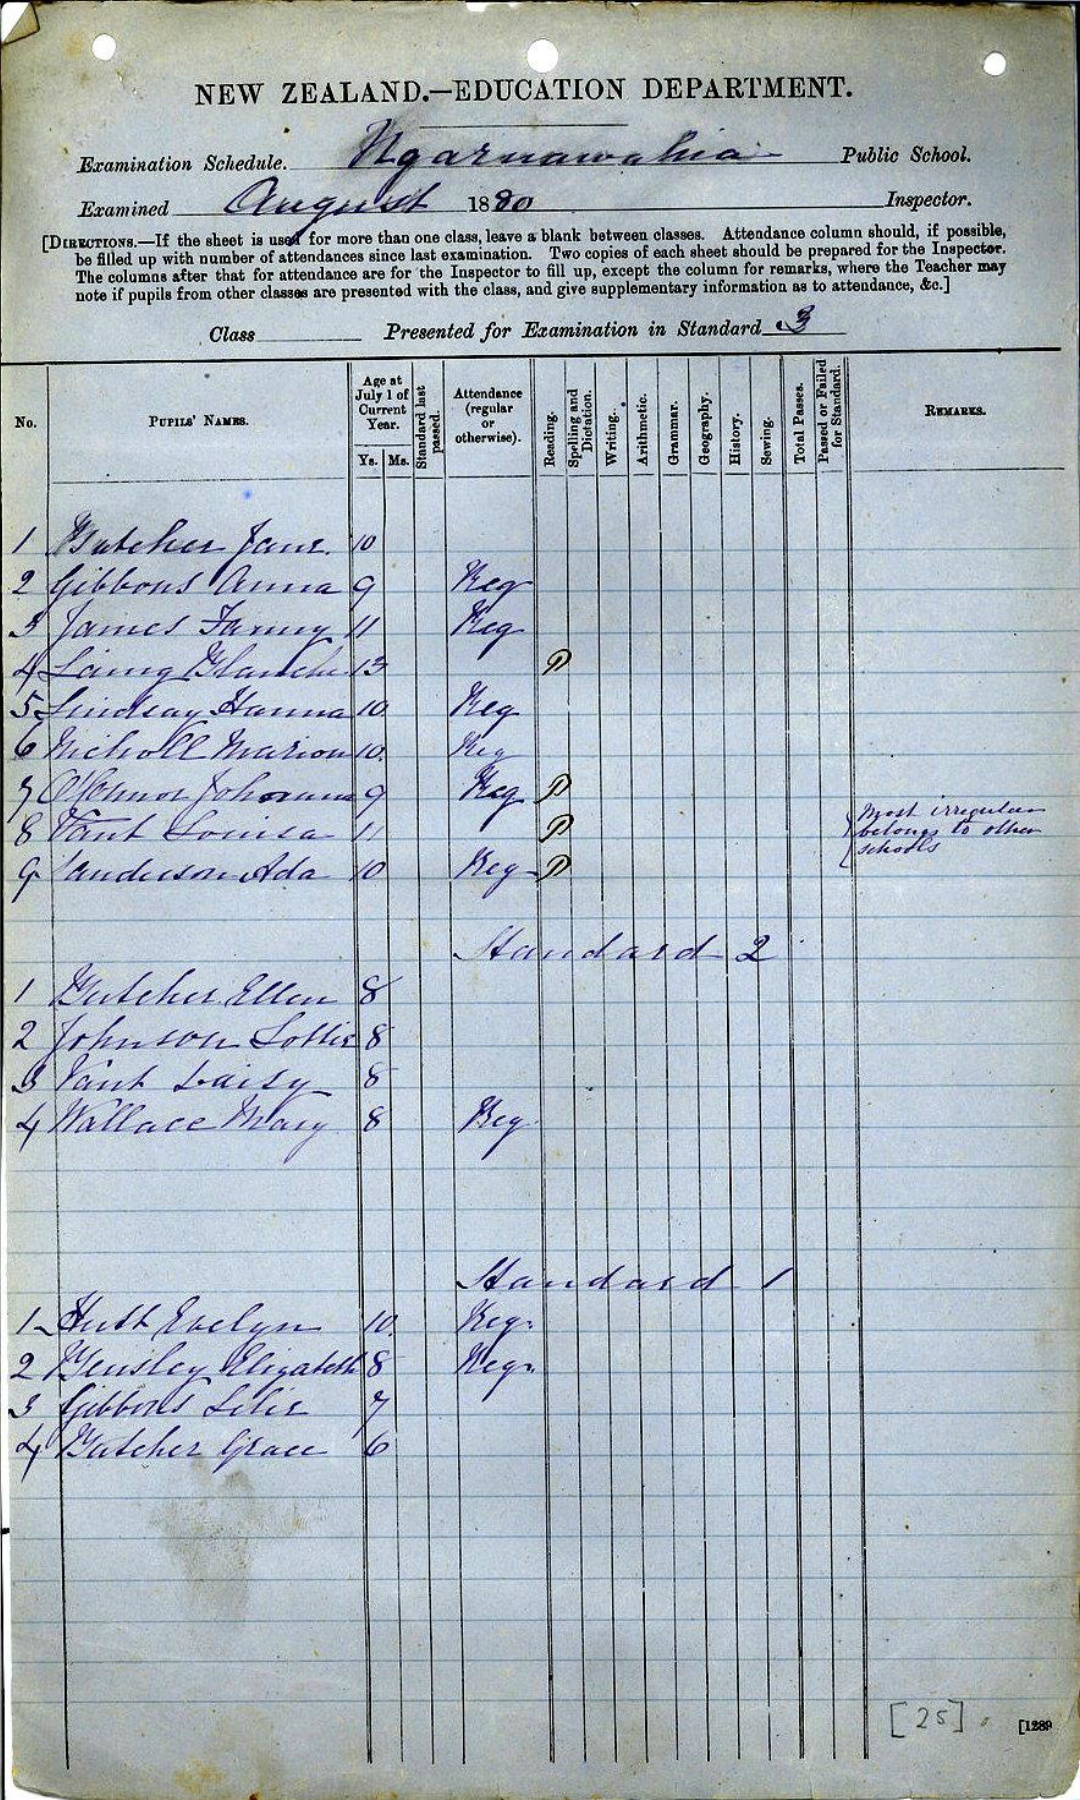 NEW ZEALAND.—EDUCATION DEPARTMENT.
Examination Schedule. Ngaruawahia Public School.
Examined August 1880 Inspector.
[DIRECTIONS.—If the sheet is used for more than one class, leave a blank between classes. Attendance column should, if possible,
be filled up with number of attendances since last examination. Two copies of each sheet should be prepared for the Inspector.
The columns after that for attendance are for the Inspector to fill up, except the column for remarks, where the Teacher may
note if pupils from other classes are presented with the class, and give supplementary information as to attendance, &c.]
Class Presented for Examination in Standard 3
No. PUPILS' NAMES. Age at July 1 of Current Year. Ys. Ms. Standard last passed. Attendance (regular or otherwise). Reading. Spelling and Dictation. Writing. Arithmetic. Grammar. Geography. History. Sewing. Total Passes. Passed or Failed for Standard. REMARKS.
1 Butcher Jane. 10
2 Gibbons Anna 9 Reg
3 James Fanny 11 Reg
4 Laing Blanche 13 P
5 Lindsay Hanna 10 Reg
6 Nicholl Marion 10. Reg
7 O'Connor Johanna 9 Reg P
8 Vant Louisa 11 P Most irregular belongs to other schools
9 Sanderson Ada 10 Reg P
Standard 2
1 Butcher Ellen 8
2 Johnson Lottie 8
3 Vant Daisy 8
4 Wallace Mary 8 Reg
Standard 1
1 Hutt Evelyn 10. Reg.
2 Bensley Elizabeth 8 Reg.
3 Gibbons Lilie 7
4 Butcher Grace 6
[25]
[1289